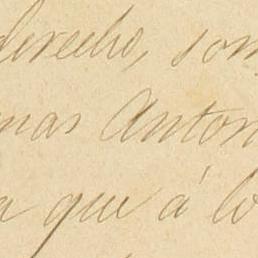 derecho, som
mas Anton
a que á lo